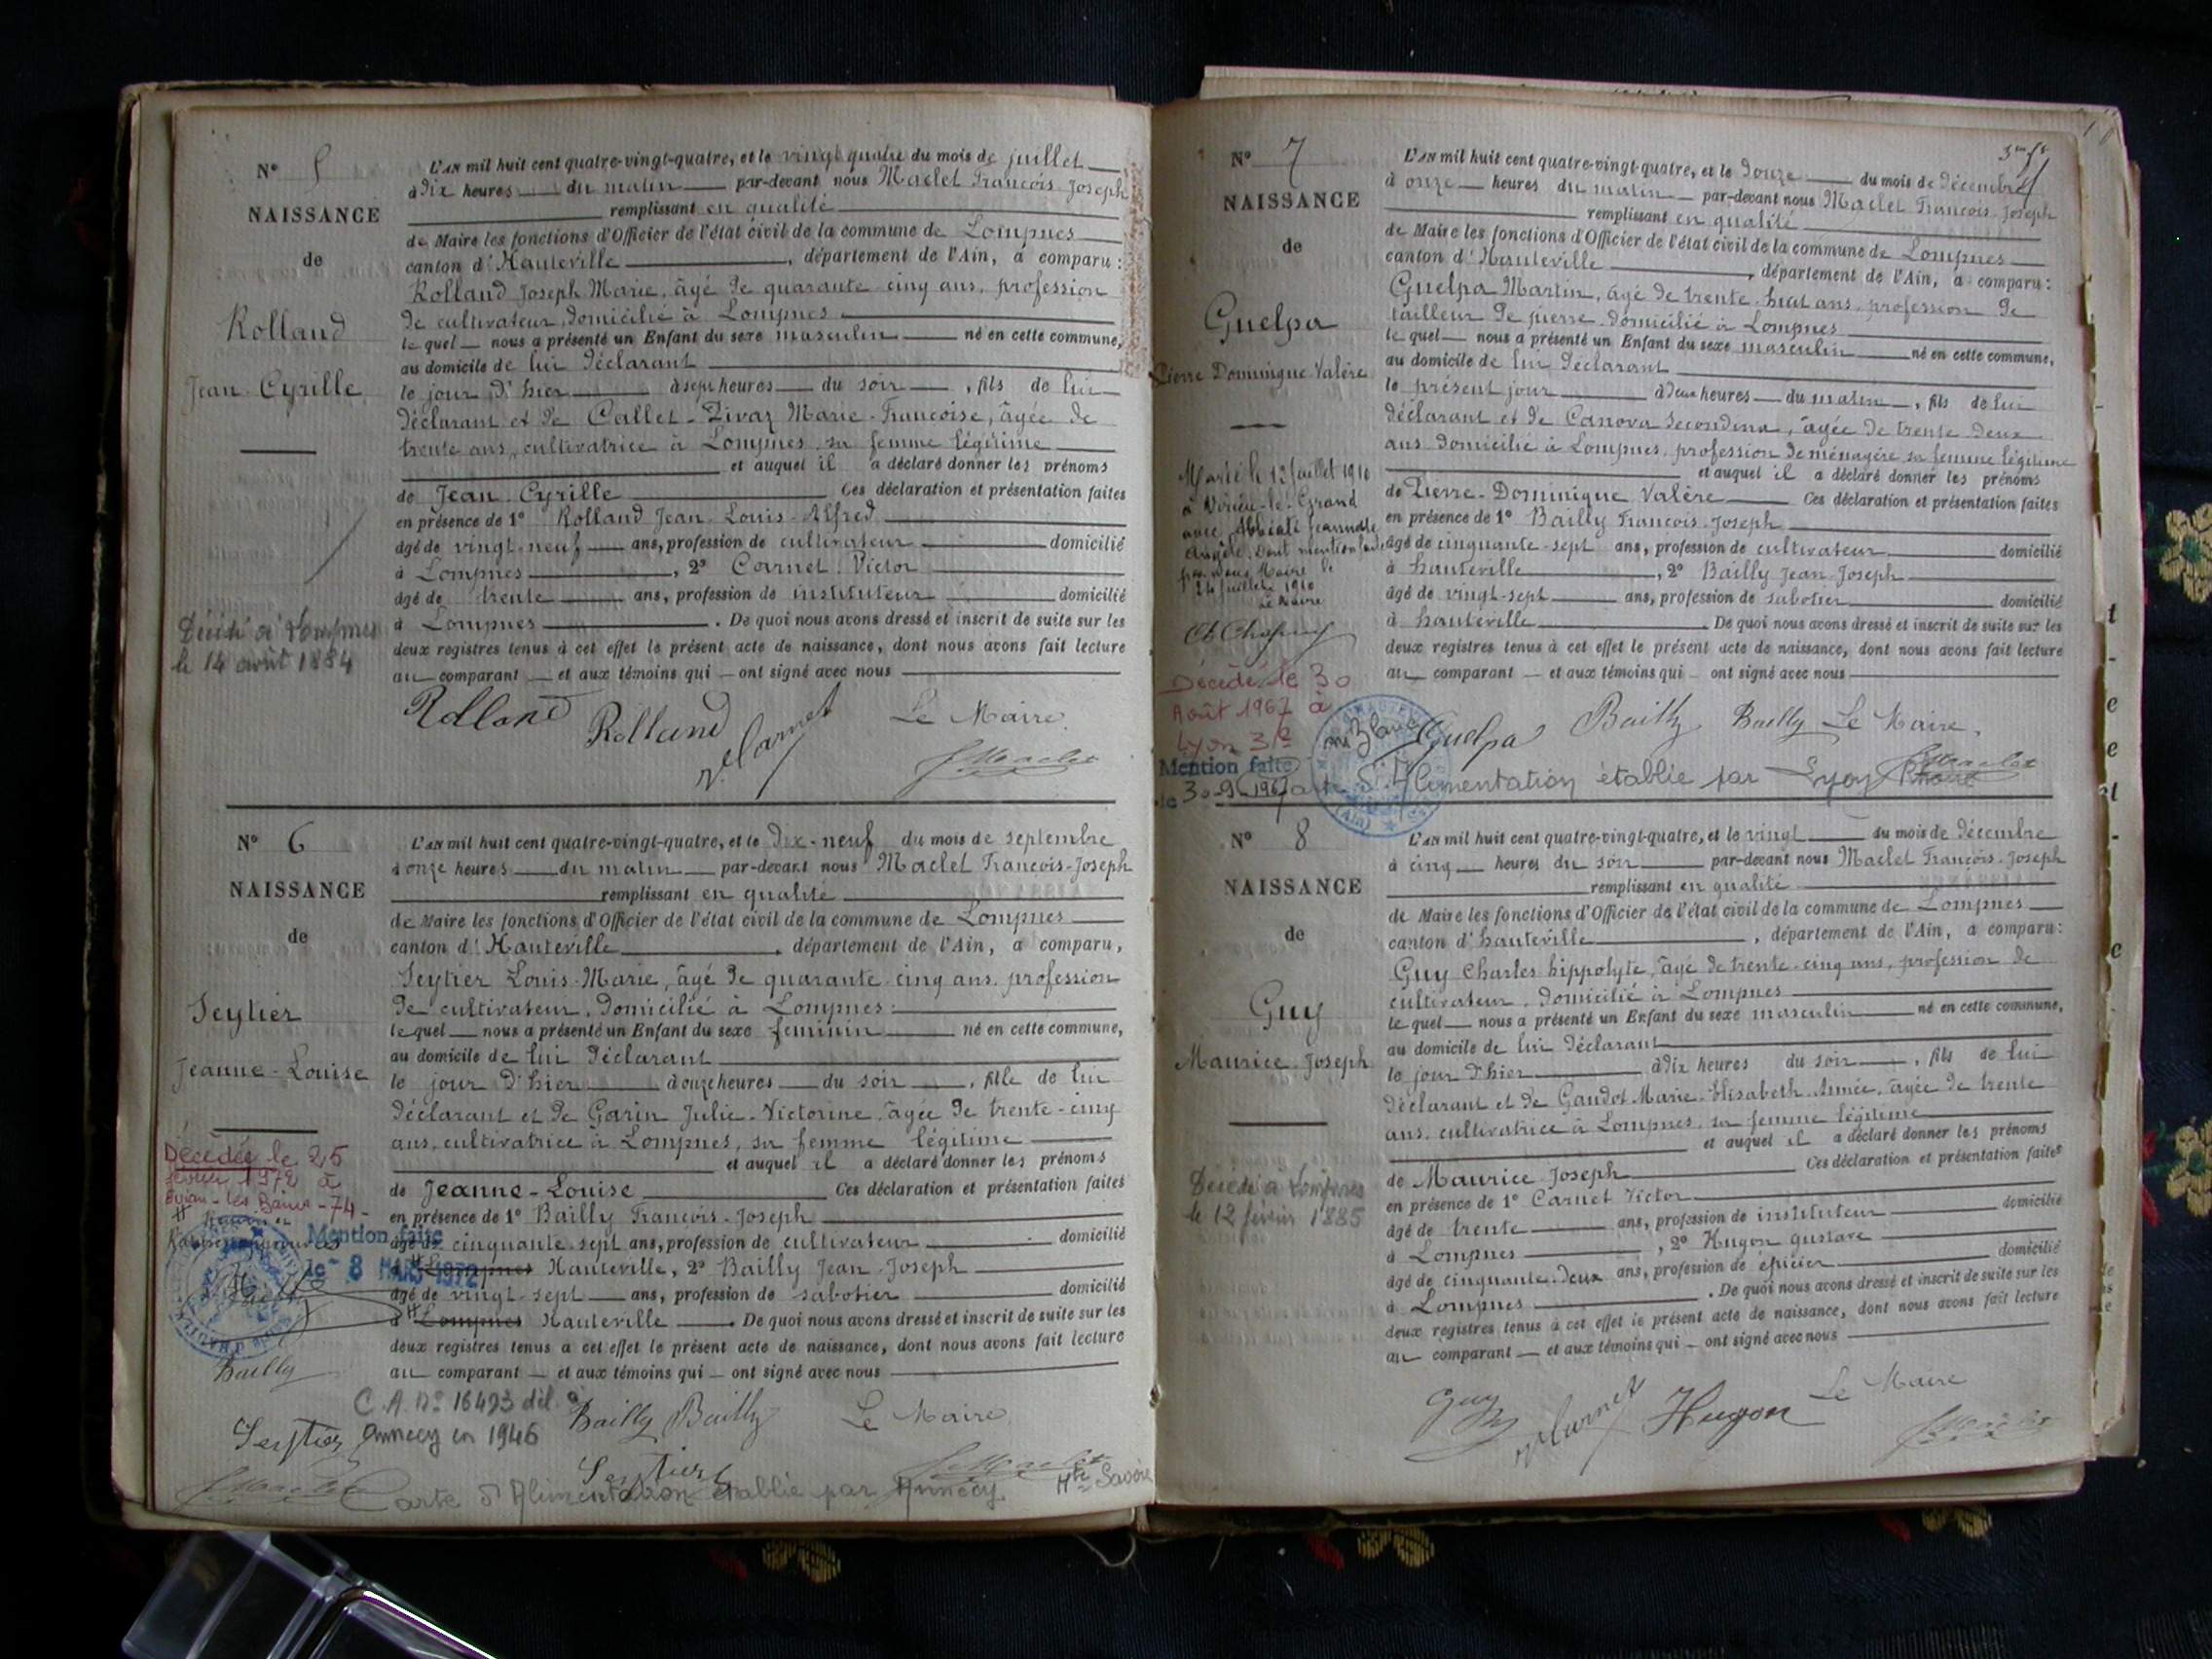 N° 5
NAISSANCE
de
Rolland
Jean-Cyrille
Décédé à Lompnes
le 14 août 1884
L'AN mil huit cent quatre-vingt-quatre, et le vingt quatre du mois de juillet
à dix heures du matin par-devant nous Maclet François Joseph
remplissant en qualité
de Maire les fonctions d'Officier de l'état civil de la commune de Lompnes
canton d'Hauteville, département de l'Ain, a comparu :
Rolland Joseph Marie, âgé de quarante cinq ans, profession
de cultivateur, domicilié à Lompnes
lequel nous a présenté un Enfant du sexe masculin né en cette commune,
au domicile de lui déclarant
le jour d'hier à sept heures du soir, fils de lui
déclarant et de Callet-Rivaz Marie-Françoise, âgée de
trente ans, cultivatrice à Lompnes, sa femme légitime
et auquel il a déclaré donner les prénoms
de Jean Cyrille Ces déclaration et présentation faites
en présence de 1° Rolland Jean-Louis-Alfred
âgé de vingt-neuf ans, profession de cultivateur domicilié
à Lompnes, 2° Carnet Victor
âgé de trente ans, profession de instituteur domicilié
à Lompnes. De quoi nous avons dressé et inscrit de suite sur les
deux registres tenus à cet effet le présent acte de naissance, dont nous avons fait lecture
au comparant et aux témoins qui ont signé avec nous
Rolland Rolland V. Carnet Le Maire
Maclet
N° 6
NAISSANCE
de
Seytier
Jeanne-Louise
Décédée le 25
février 1972 à
Evian-les-Bains-74-
Mention faite
le 8 MARS 1972
Bailly
Seytier
L'AN mil huit cent quatre-vingt-quatre, et le dix-neuf du mois de septembre
à onze heures du matin par-devant nous Maclet François-Joseph
remplissant en qualité
de Maire les fonctions d'Officier de l'état civil de la commune de Lompnes
canton d'Hauteville, département de l'Ain, a comparu,
Seytier Louis-Marie, âgé de quarante-cinq ans, profession
de cultivateur, domicilié à Lompnes
lequel nous a présenté un Enfant du sexe féminin né en cette commune,
au domicile de lui déclarant
le jour d'hier à onze heures du soir, fille de lui
déclarant et de Garin Julie-Victorine, âgée de trente-cinq
ans, cultivatrice à Lompnes, sa femme légitime
et auquel il a déclaré donner les prénoms
de Jeanne-Louise Ces déclaration et présentation faites
en présence de 1° Bailly François-Joseph
âgé de cinquante-sept ans, profession de cultivateur domicilié
à Lompnes Hauteville, 2° Bailly Jean-Joseph
âgé de vingt-sept ans, profession de sabotier domicilié
à Lompnes Hauteville. De quoi nous avons dressé et inscrit de suite sur les
deux registres tenus à cet effet le présent acte de naissance, dont nous avons fait lecture
au comparant et aux témoins qui ont signé avec nous
C.A. N° 16493 dél. à
Annecy en 1946
Bailly Bailly Le Maire
Seytier Maclet
Carte d'Alimentation établie par Annecy Hte Savoie
N° 7
NAISSANCE
de
Guelpa
Pierre Dominique Valère
Marié le 12 juillet 1910
à Virieu-le-Grand
avec Jeannette
Angèle, dont mention faite
par nous Maire le
juillet 1910
Le Maire
Décédé le 30
Août 1967 à
Lyon 3e
Mention faite
le 30-9-1967
L'AN mil huit cent quatre-vingt-quatre, et le douze du mois de décembre
à onze heures du matin par-devant nous Maclet François-Joseph
remplissant en qualité
de Maire les fonctions d'Officier de l'état civil de la commune de Lompnes
canton d'Hauteville, département de l'Ain, a comparu :
Guelpa Martin, âgé de trente-huit ans, profession de
tailleur de pierre, domicilié à Lompnes
lequel nous a présenté un Enfant du sexe masculin né en cette commune,
au domicile de lui déclarant
le présent jour à deux heures du matin, fils de lui
déclarant et de Canova Secondina, âgée de trente deux
ans domicilié à Lompnes, profession de ménagère sa femme légitime
et auquel il a déclaré donner les prénoms
de Pierre-Dominique Valère Ces déclaration et présentation faites
en présence de 1° Bailly François-Joseph
âgé de cinquante-sept ans, profession de cultivateur domicilié
à hauteville, 2° Bailly Jean-Joseph
âgé de vingt-sept ans, profession de sabotier domicilié
à hauteville. De quoi nous avons dressé et inscrit de suite sur les
deux registres tenus à cet effet le présent acte de naissance, dont nous avons fait lecture
au comparant et aux témoins qui ont signé avec nous
Guelpa Bailly Bailly Le Maire,
Maclet
Carte d'Alimentation établie par Lyon
N° 8
NAISSANCE
de
Guy
Maurice-Joseph
Décédé à Lompnes
le 12 février 1885
L'AN mil huit cent quatre-vingt-quatre, et le vingt du mois de décembre
à cinq heures du soir par-devant nous Maclet François-Joseph
remplissant en qualité
de Maire les fonctions d'Officier de l'état civil de la commune de Lompnes
canton d'hauteville, département de l'Ain, a comparu :
Guy Charles hippolyte, âgé de trente-cinq ans, profession de
cultivateur, domicilié à Lompnes
lequel nous a présenté un Enfant du sexe masculin né en cette commune,
au domicile de lui déclarant
le jour d'hier à dix heures du soir, fils de lui
déclarant et de Gaudot Marie-Elisabeth Aimée, âgée de trente
ans, cultivatrice à Lompnes, sa femme légitime
et auquel il a déclaré donner les prénoms
de Maurice Joseph Ces déclaration et présentation faites
en présence de 1° Carnet Victor
âgé de trente ans, profession de instituteur domicilié
à Lompnes, 2° Hugon gustave
âgé de cinquante-deux ans, profession de épicier domicilié
à Lompnes. De quoi nous avons dressé et inscrit de suite sur les
deux registres tenus à cet effet le présent acte de naissance, dont nous avons fait lecture
au comparant et aux témoins qui ont signé avec nous
Guy V. Carnet Hugon Le Maire
Maclet